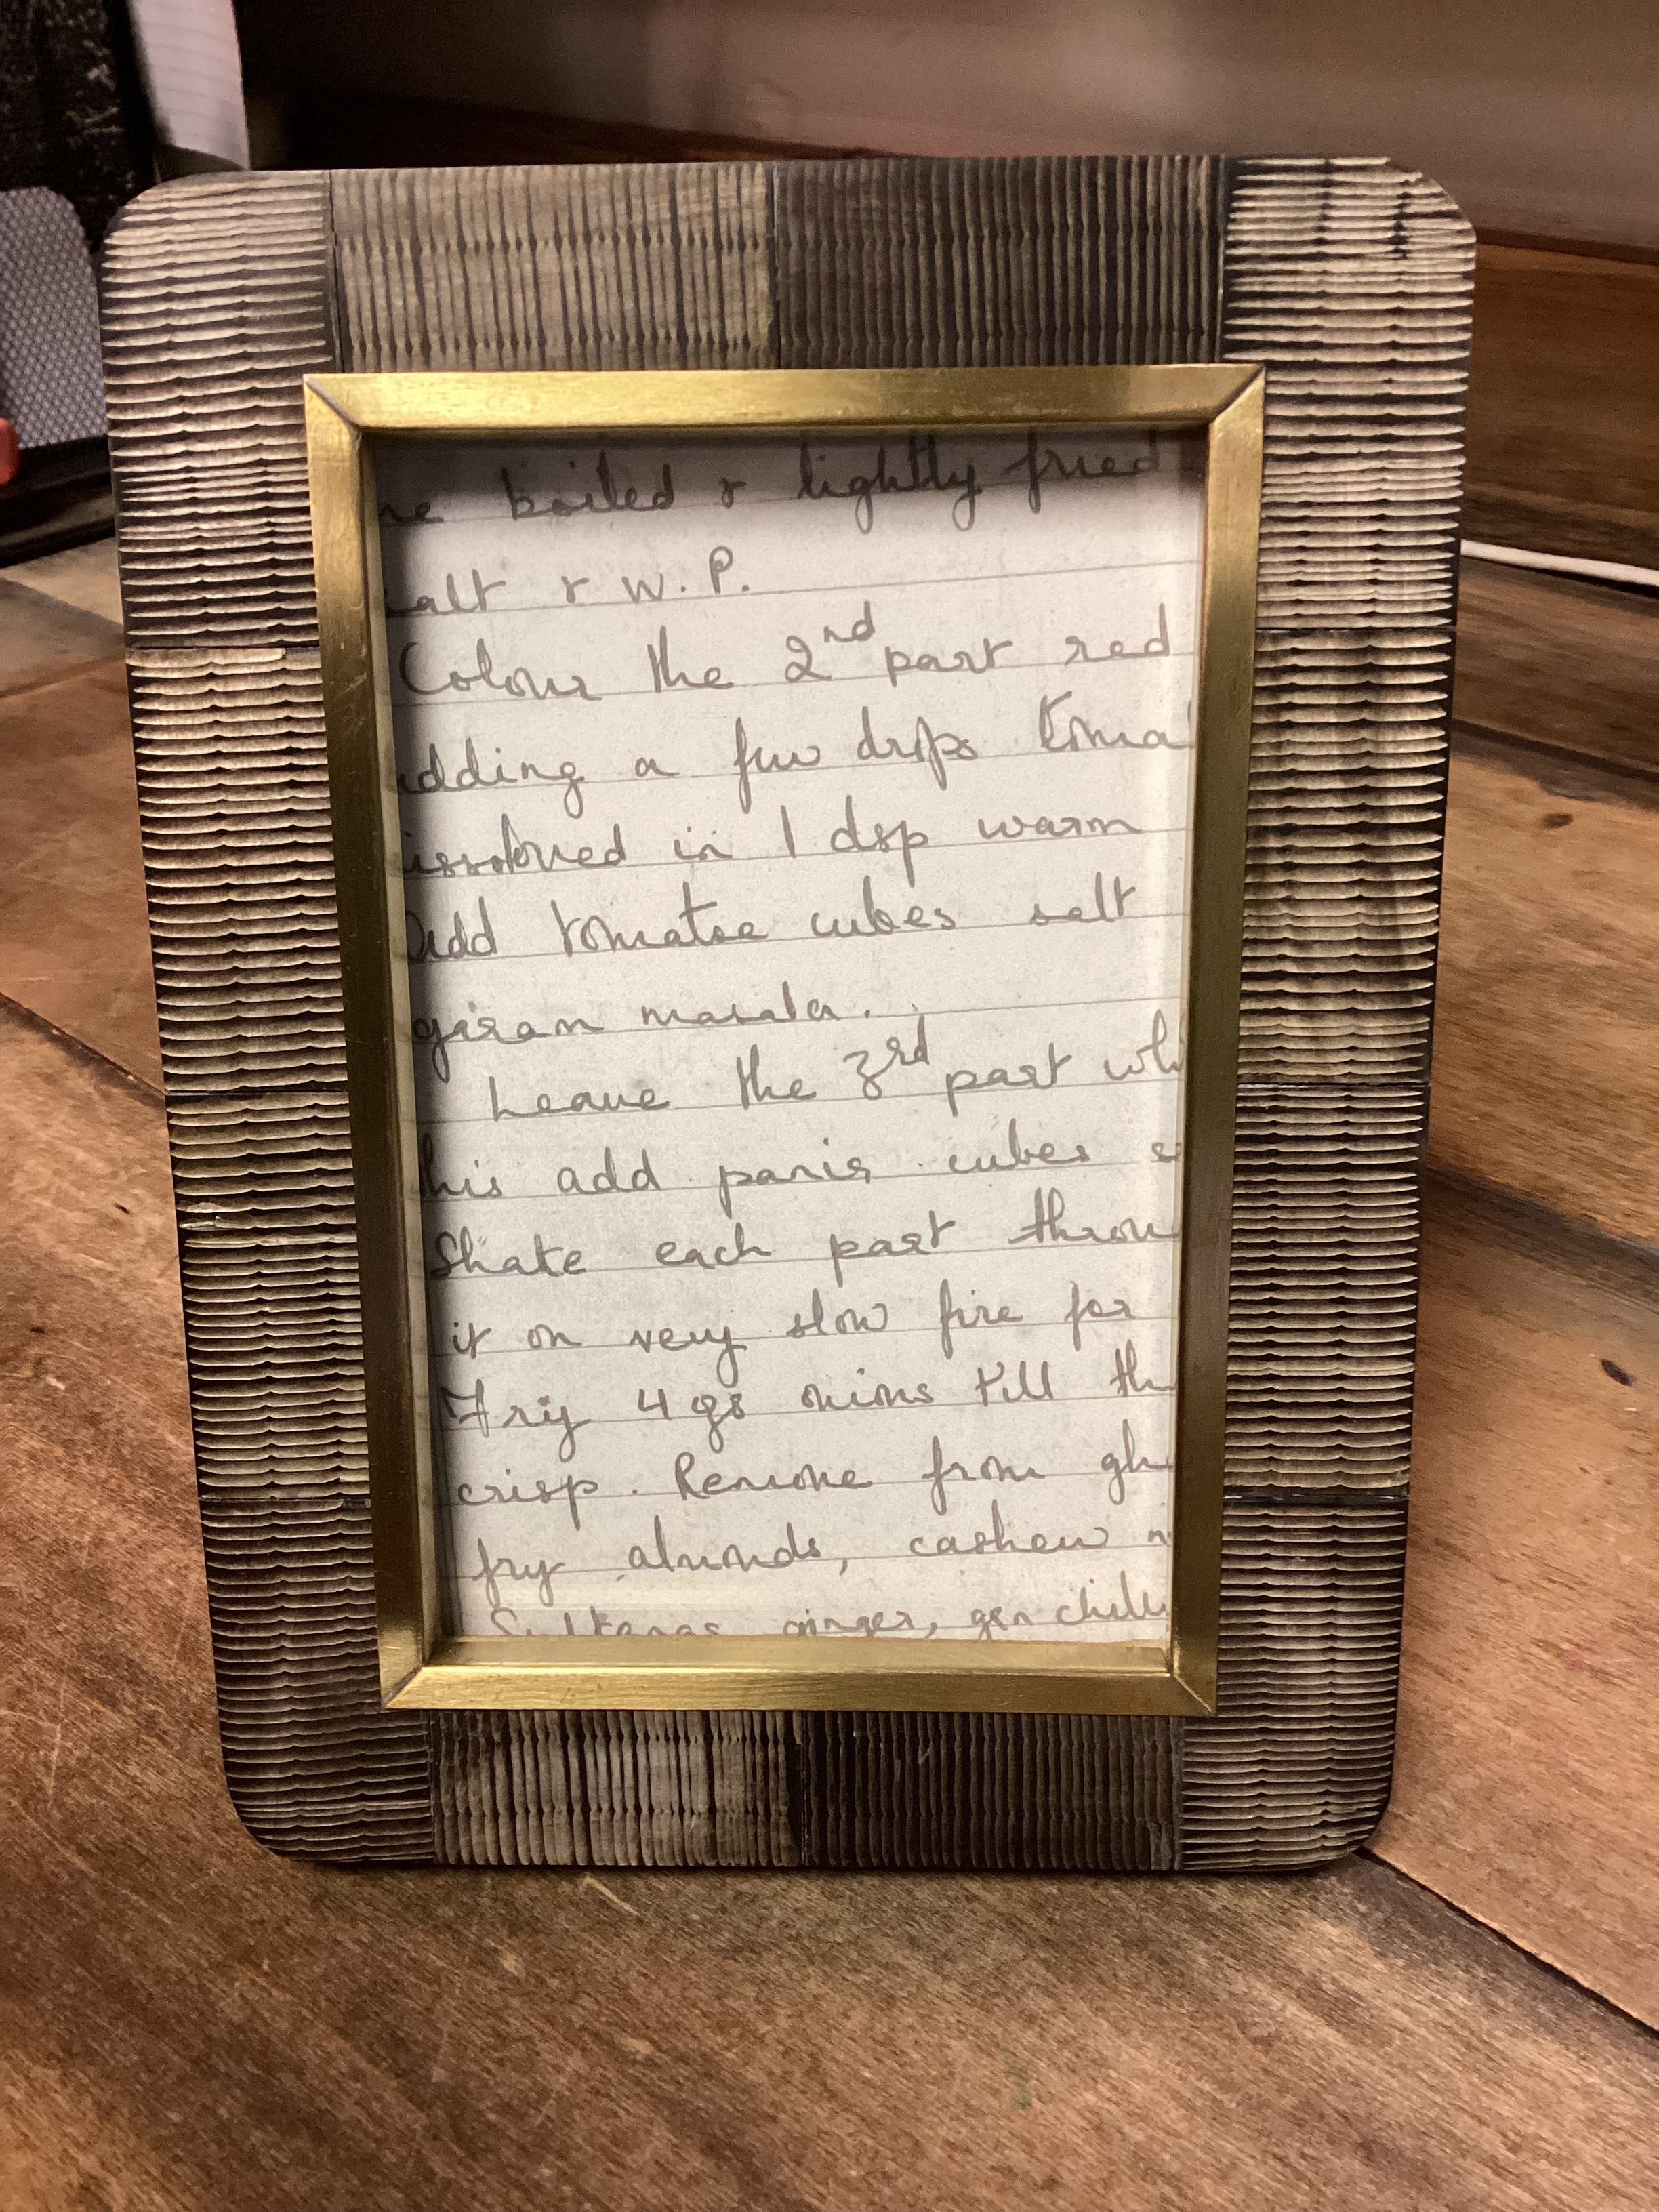 he boiled & lightly fried
alt & W.P.
Colour the 2nd part red
dding a few drops toma
issolved in 1 dsp warm
Add tomatoe cubes salt
garam masala.
Leave the 3rd part whi
his add panir cubes
Shake each part throu
it on very slow fire for
Fry 4 gs onions till th
crisp. Remove from gh
fry almonds, cashew n
Sultanas ginger, gn chilli